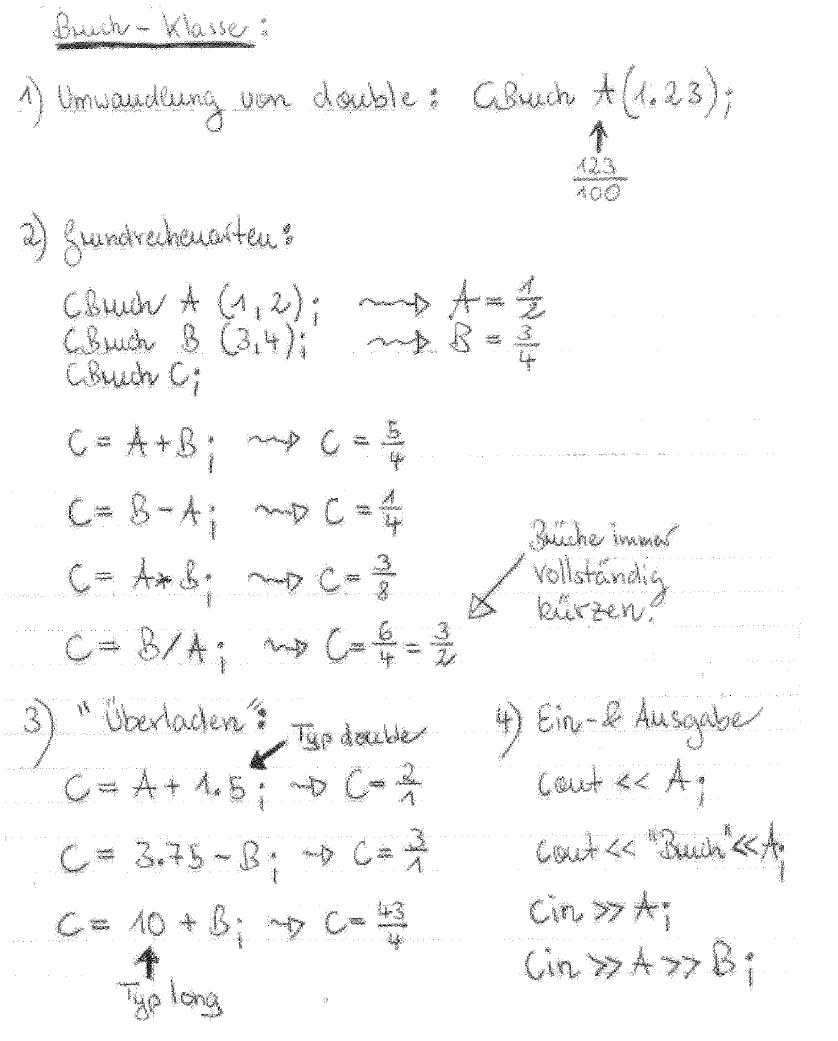 Bruch-Klasse:
1) Umwandlung von double: CBruch A(1.23);
↑
123/100
2) Grundrechenarten:
CBruch A (1,2); ⇝ A = 1/2
CBruch B (3,4); ⇝ B = 3/4
CBruch C;
C = A+B; ⇝ C = 5/4
C = B-A; ⇝ C = 1/4
C = A*B; ⇝ C = 3/8
C = B/A; ⇝ C = 6/4 = 3/2
Brüche immer
vollständig
kürzen!
3) "Überladen":
Typ double
C = A + 1.5; → C = 2/1
C = 3.75 - B; → C = 3/1
C = 10 + B; → C = 43/4
↑
Typ long
4) Ein- & Ausgabe
cout << A;
cout << "Bruch" << A;
cin >> A;
cin >> A >> B;